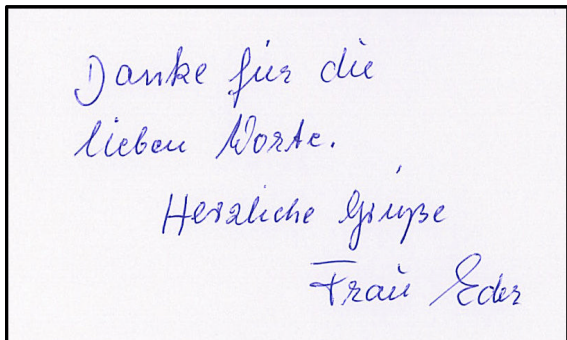 Danke für die
lieben Worte.
Herzliche Grüße
Frau Eder